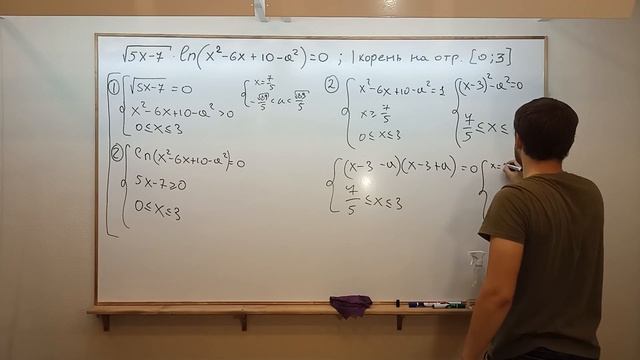 √5x-7 · ln(x²-6x+10-a²)=0 ; 1 корень на отр. [0;3]
① √5x-7 = 0
x²-6x+10-a²>0
0≤x≤3
x=7/5
-√89/5<a<√89/5
② ln(x²-6x+10-a²)=0
5x-7≥0
0≤x≤3
② x²-6x+10-a²=1
x≥7/5
0≤x≤3
(x-3)²-a²=0
7/5≤x≤
(x-3-a)(x-3+a)=0
7/5≤x≤3
x=